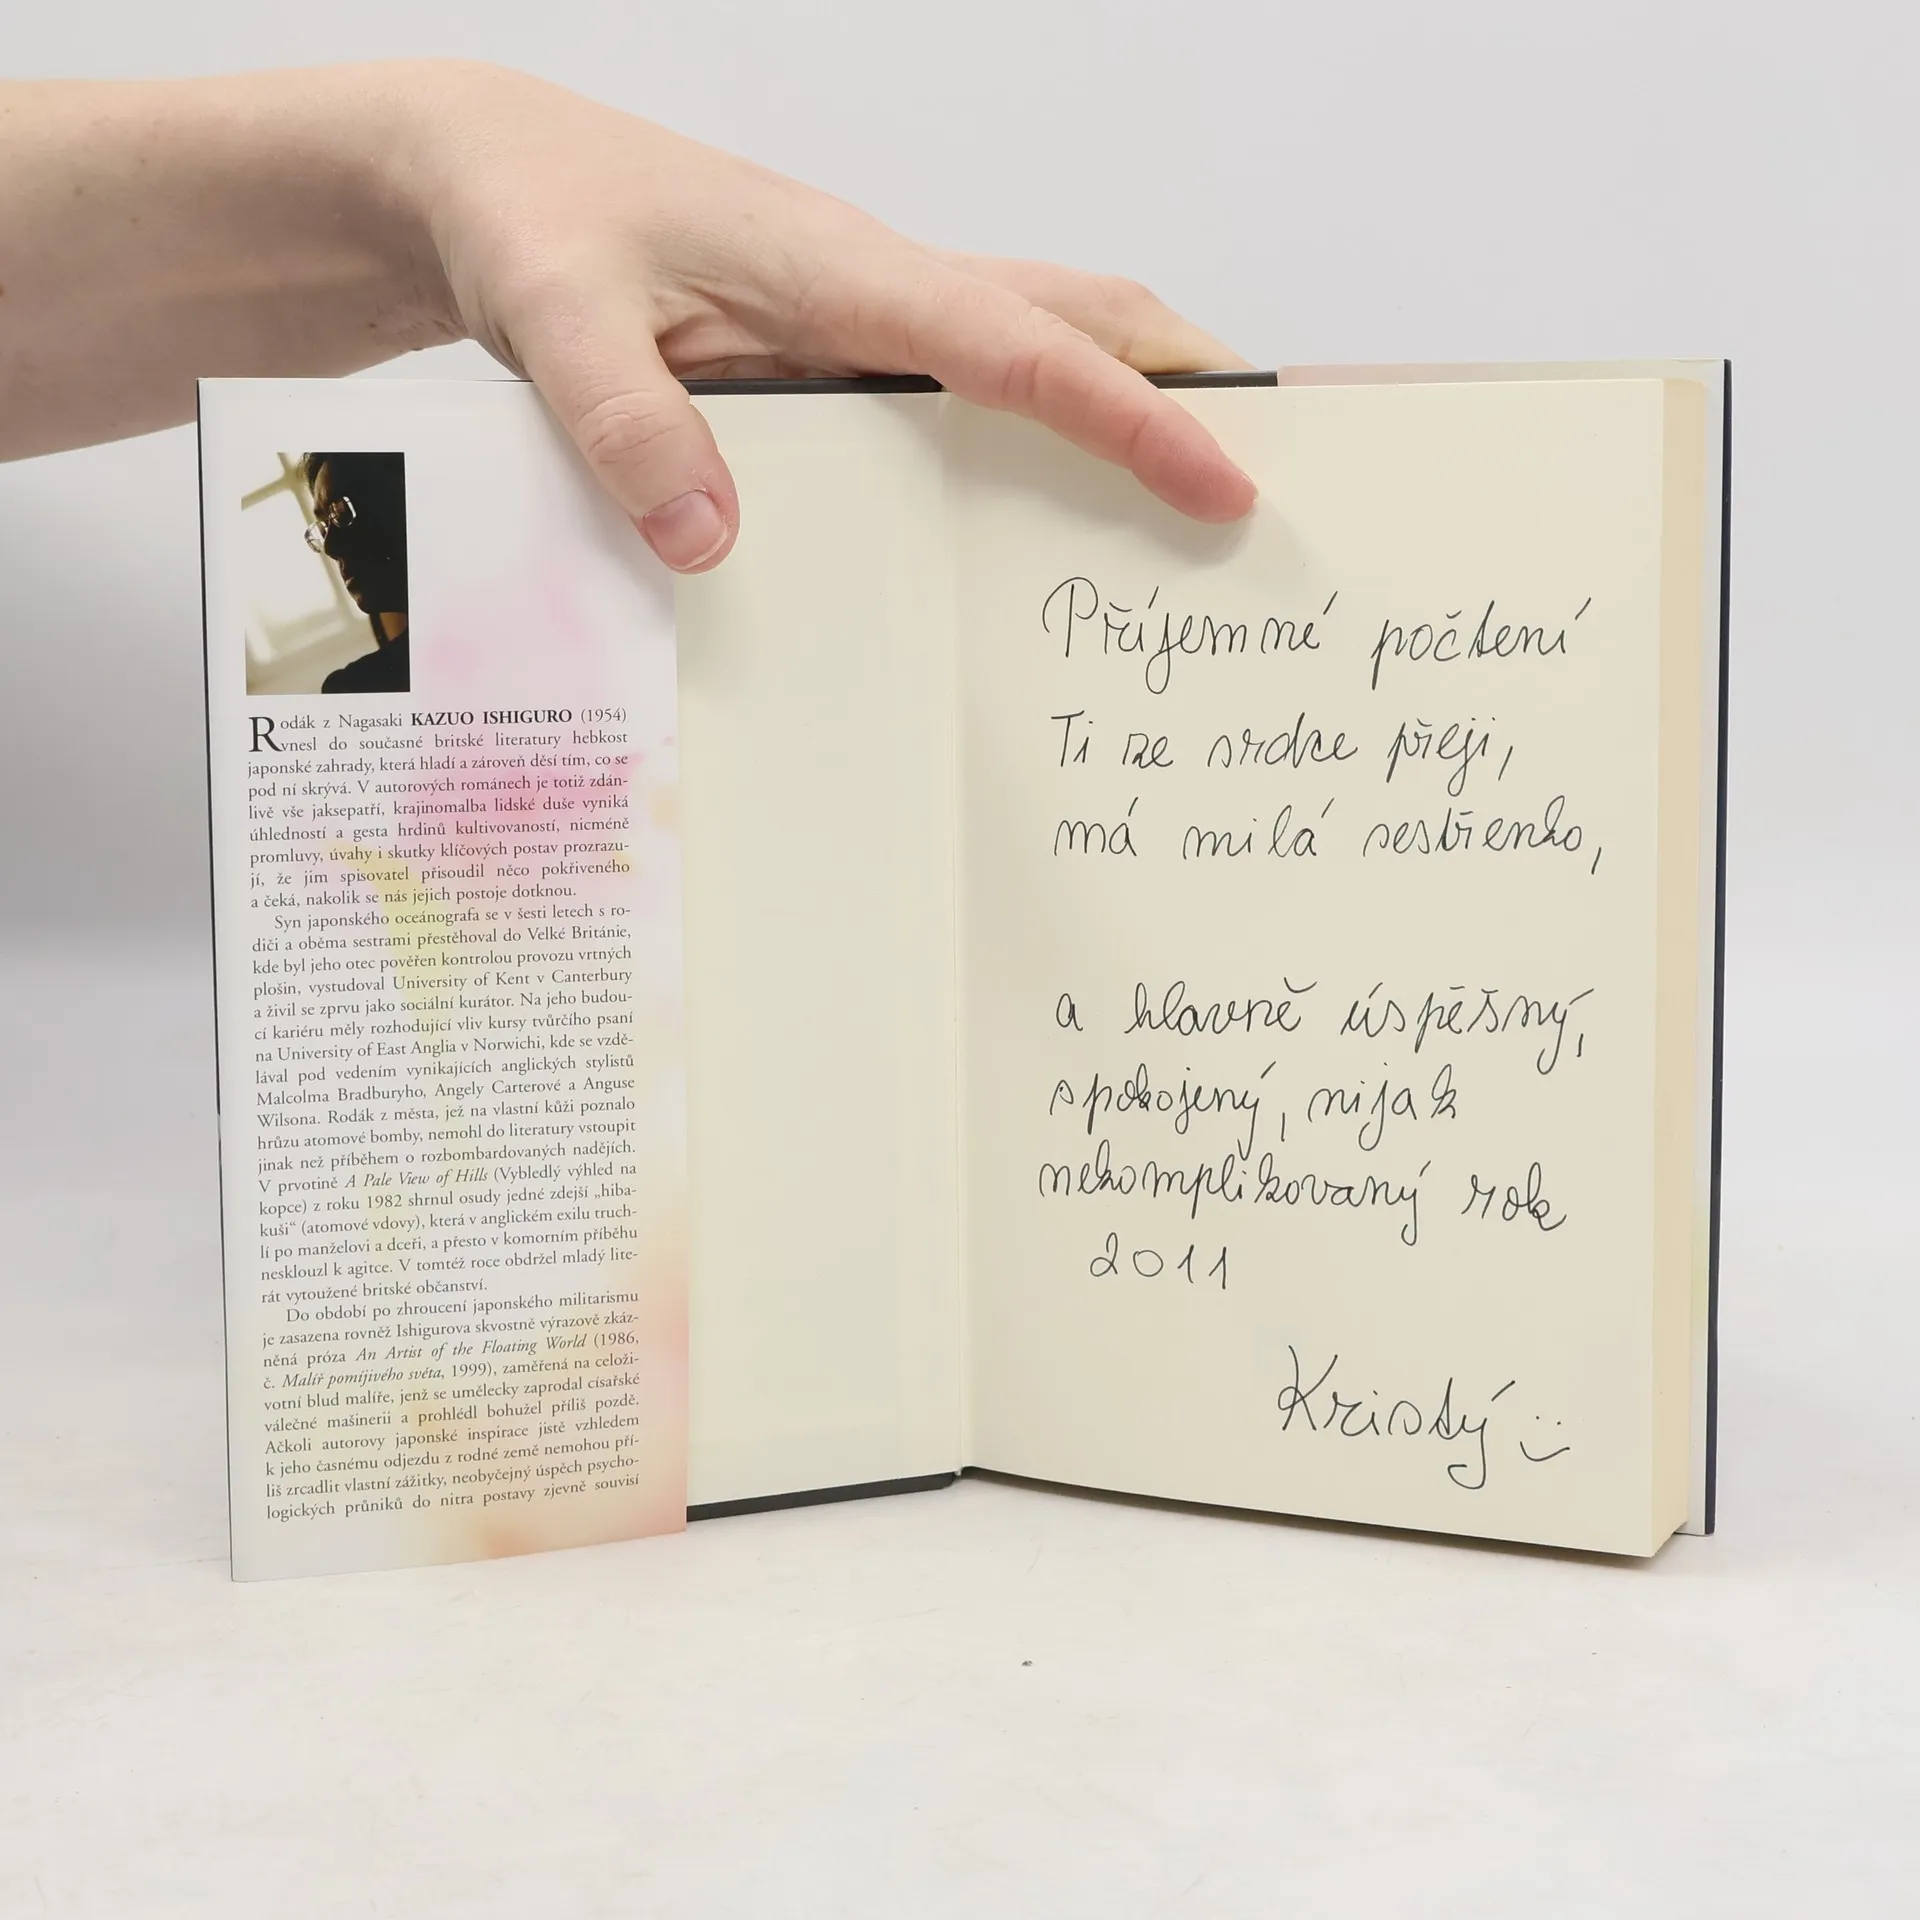 Rodák z Nagasaki KAZUO ISHIGURO (1954)
vnesl do současné britské literatury hebkost
japonské zahrady, která hladí a zároveň děsí tím, co se
pod ní skrývá. V autorových románech je totiž zdán-
livě vše jaksepatří, krajinomalba lidské duše vyniká
úhledností a gesta hrdinů kultivovaností, nicméně
promluvy, úvahy i skutky klíčových postav prozrazu-
jí, že jim spisovatel přisoudil něco pokřiveného
a čeká, nakolik se nás jejich postoje dotknou.
Syn japonského oceánografa se v šesti letech s ro-
diči a oběma sestrami přestěhoval do Velké Británie,
kde byl jeho otec pověřen kontrolou provozu vrtných
plošin, vystudoval University of Kent v Canterbury
a živil se zprvu jako sociální kurátor. Na jeho budou-
cí kariéru měly rozhodující vliv kursy tvůrčího psaní
na University of East Anglia v Norwichi, kde se vzdě-
lával pod vedením vynikajících anglických stylistů
Malcolma Bradburyho, Angely Carterové a Anguse
Wilsona. Rodák z města, jež na vlastní kůži poznalo
hrůzu atomové bomby, nemohl do literatury vstoupit
jinak než příběhem o rozbombardovaných nadějích.
V prvotině A Pale View of Hills (Vybledlý výhled na
kopce) z roku 1982 shrnul osudy jedné zdejší „hiba-
kuši“ (atomové vdovy), která v anglickém exilu truch-
lí po manželovi a dceři, a přesto v komorním příběhu
nesklouzl k agitce. V tomtéž roce obdržel mladý lite-
rát vytoužené britské občanství.
Do období po zhroucení japonského militarismu
je zasazena rovněž Ishigurova skvostně výrazově zkáz-
něná próza An Artist of the Floating World (1986,
č. Malíř pomíjivého světa, 1999), zaměřená na celoži-
votní blud malíře, jenž se umělecky zaprodal císařské
válečné mašinerii a prohlédl bohužel příliš pozdě.
Ačkoli autorovy japonské inspirace jistě vzhledem
k jeho časnému odjezdu z rodné země nemohou pří-
liš zrcadlit vlastní zážitky, neobyčejný úspěch psycho-
logických průniků do nitra postavy zjevně souvisí
Příjemné počtení
Ti ze srdce přeji,
má milá sestřenko,
a hlavně úspěšný,
spokojený, nijak
nekomplikovaný rok
2011
Kristý :)